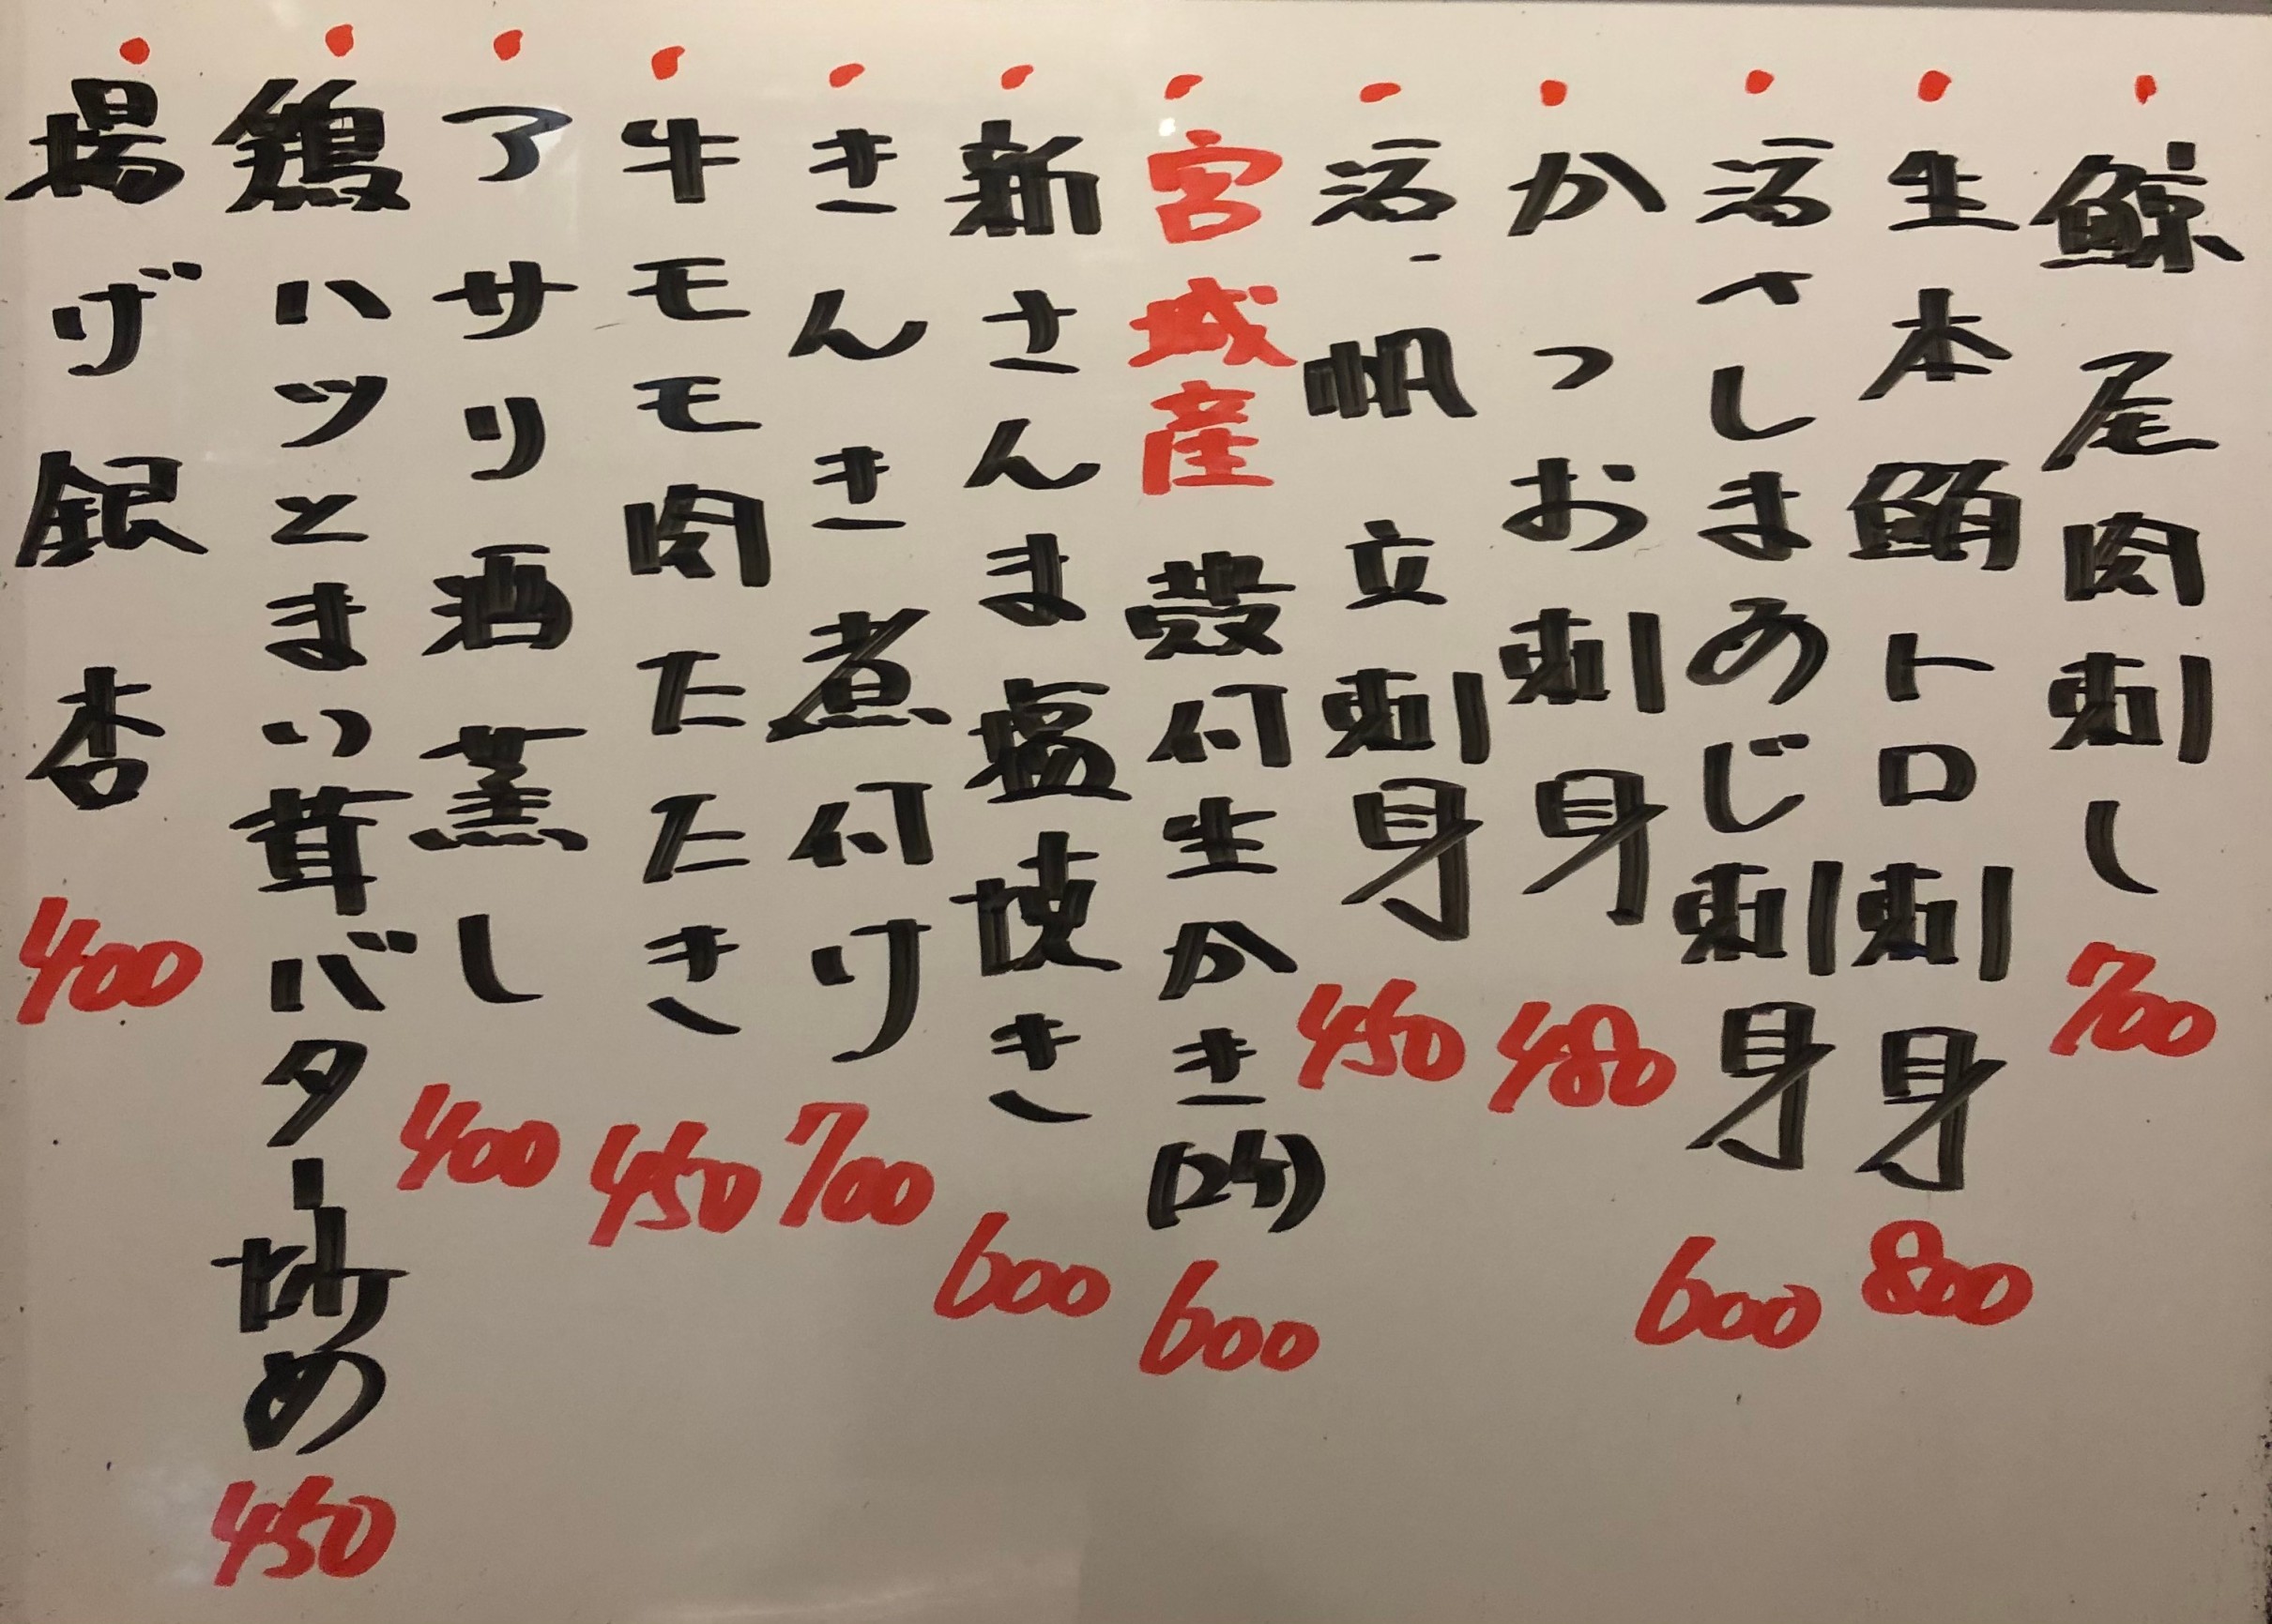 鯨尾肉刺し 700
生本鮪トロ刺身 800
活さしまあじ刺身 600
かつお刺身 480
活帆立刺身 450
宮城産 殻付生かき(2ケ) 600
新さんま塩焼き 600
きんき煮付け 700
牛モモ肉たたき 450
アサリ酒蒸し 400
鶏ハツとまい茸バター炒め 450
揚げ銀杏 400